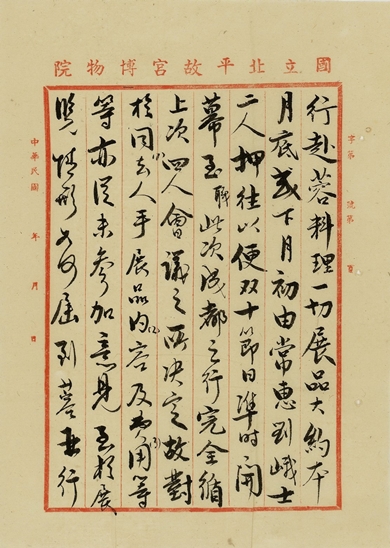 國立北平故宮博物院
字第 號第 頁
行赴蓉料理一切展品大約本
月底或下月初由常惠劉峨士
二人押往以便双十節日準時開
幕至職此次成都之行完全循
上次四人會議之所決定故對
於同去人手(1)展品內容(2)及費用(3)等
等亦從未參加意見至於展
覽情形如何屆到蓉再行
中華民國 年 月 日